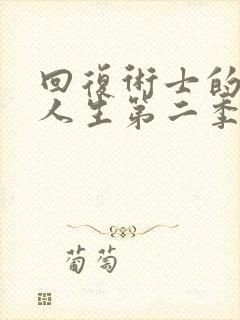 回復術士的
人生第二季
葡萄